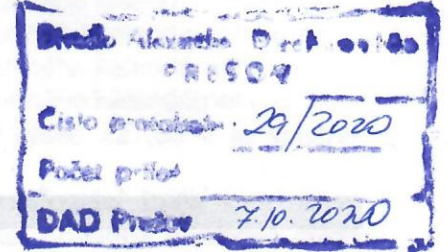 Divadlo Alexandra Duchnoviča
PREŠOV
Číslo protokolu 29/2020
Počet príloh
DAD Prešov 7.10.2020